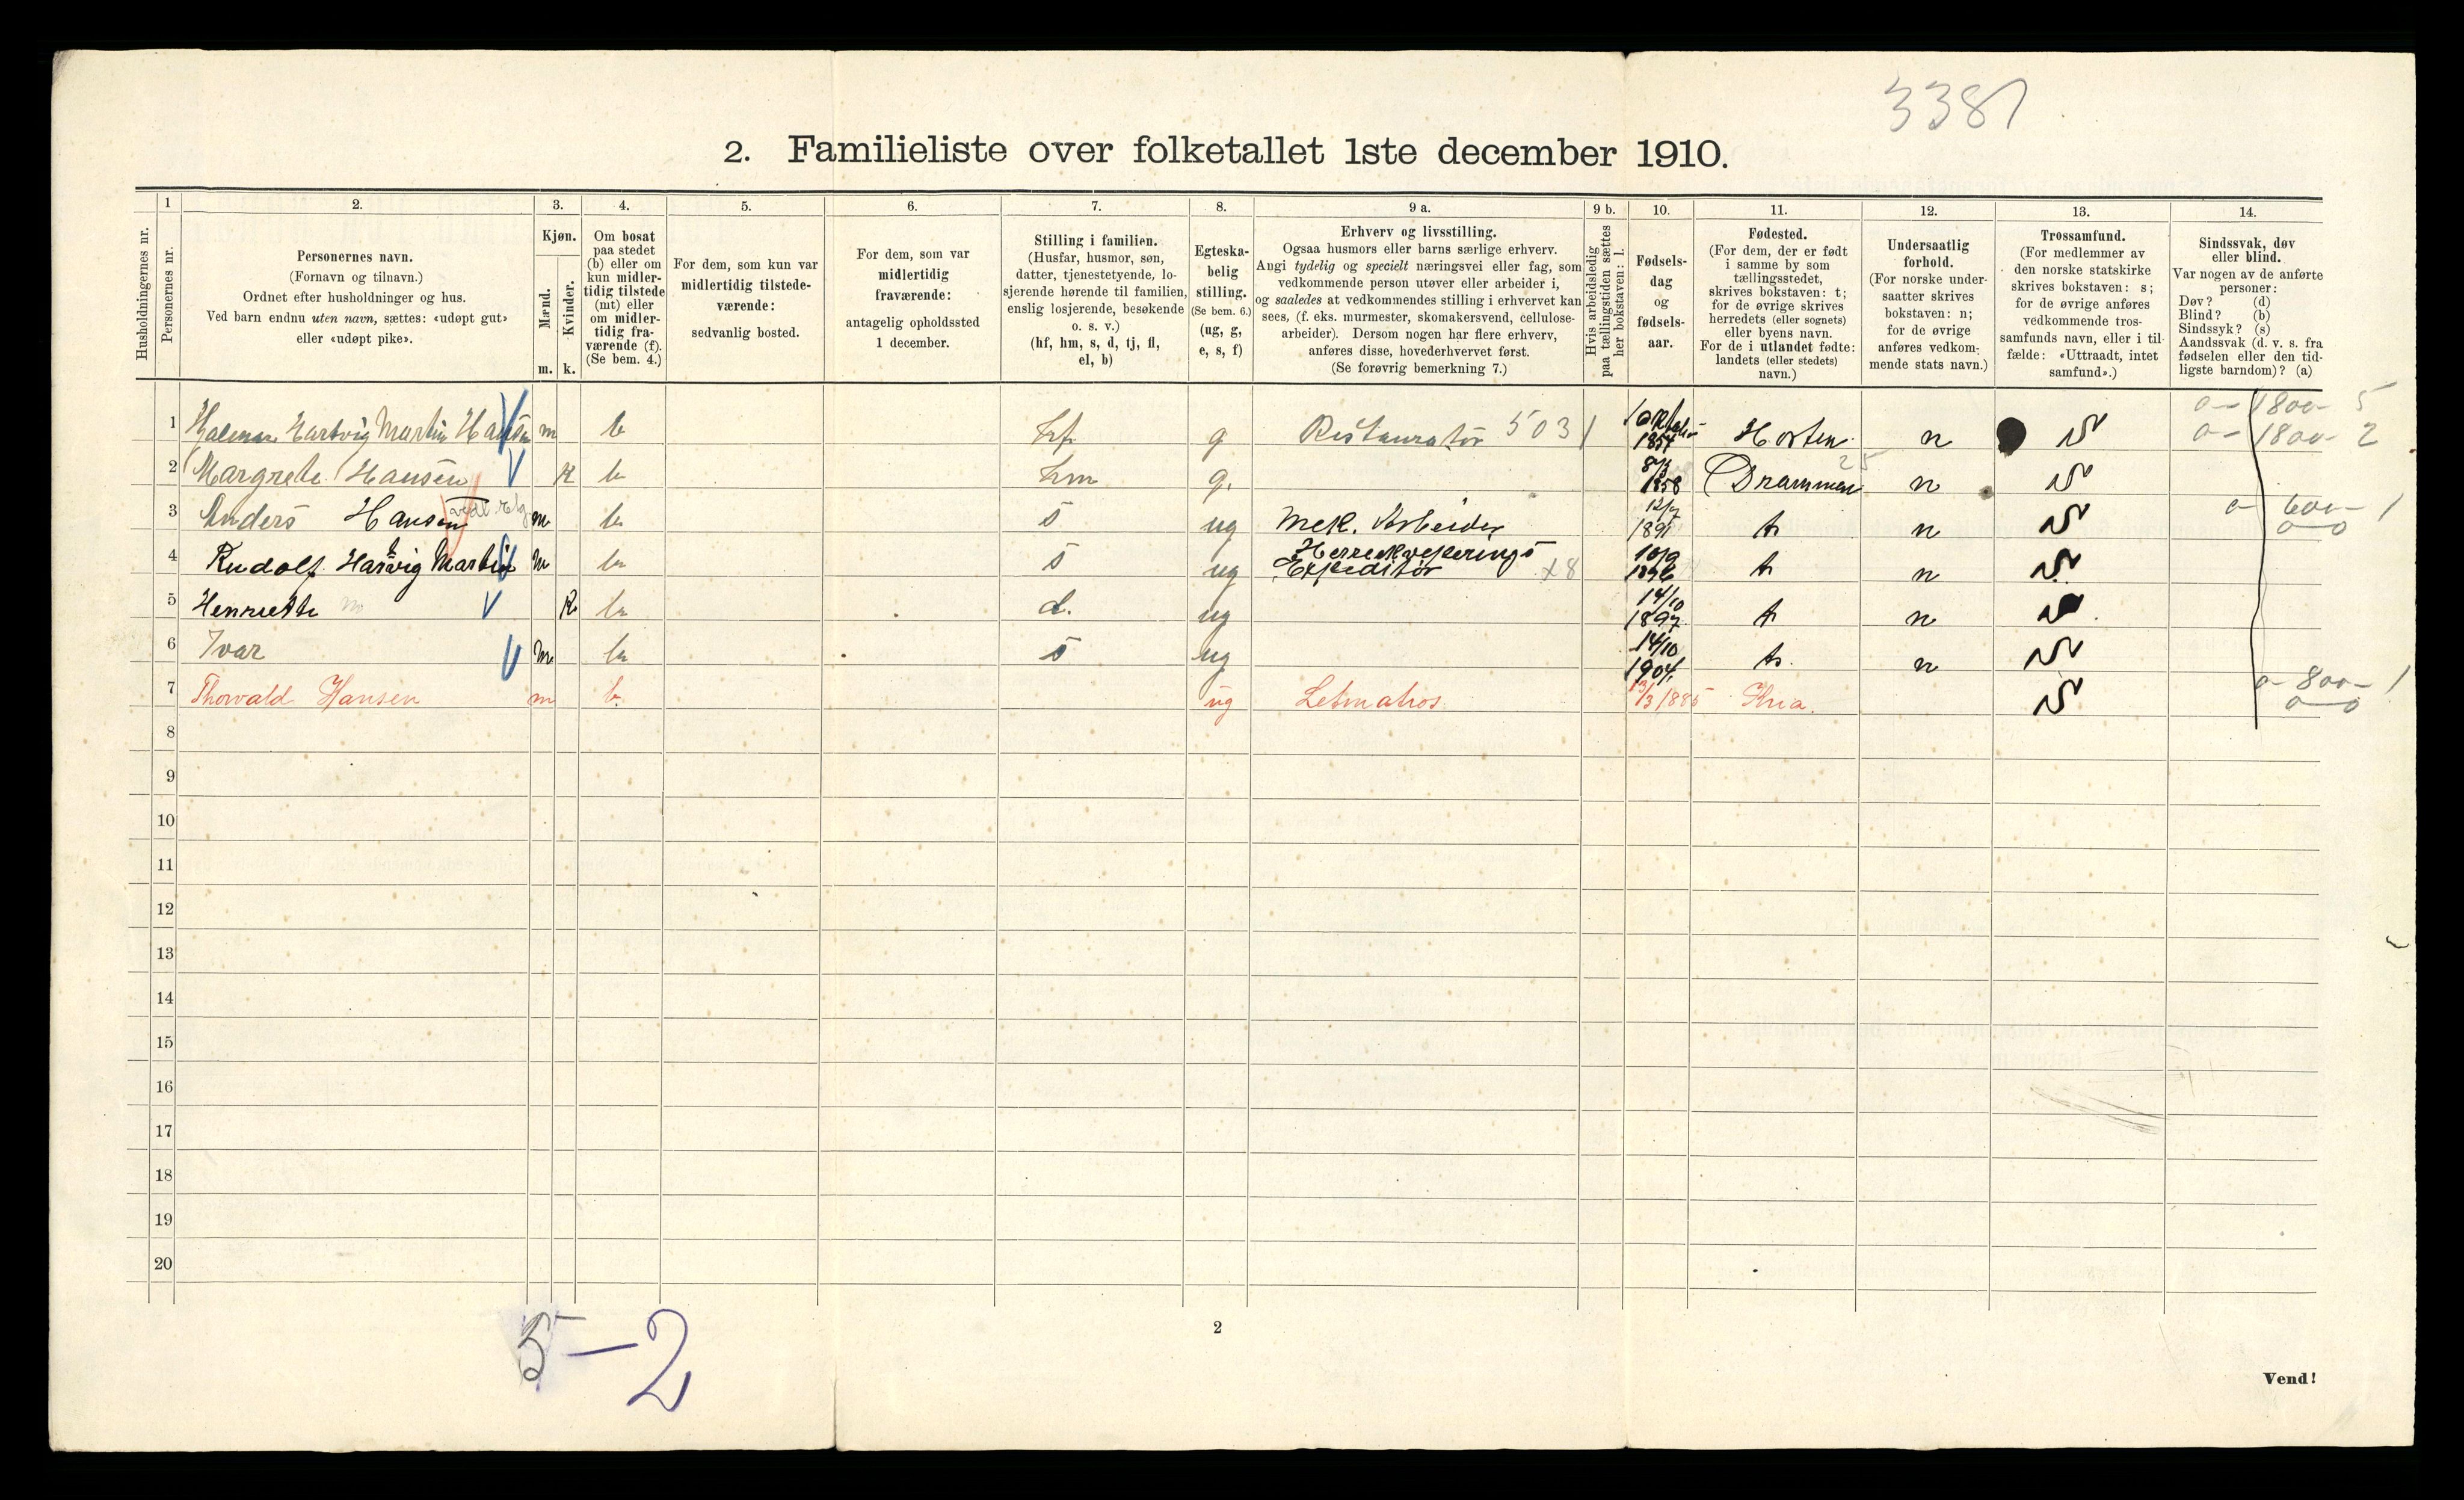 3381
2. Familieliste over folketallet 1ste december 1910.
Husholdningernes nr.
1
Personernes nr.
2.
Personernes navn.
(Fornavn og tilnavn.)
Ordnet efter husholdninger og hus.
Ved barn endnu uten navn, sættes: «udøpt gut»
eller «udøpt pike».
3.
Kjøn.
Mænd.
Kvinder.
m. k.
4.
Om bosat
paa stedet
(b) eller om
kun midler-
tidig tilstede
(mt) eller
om midler-
tidig fra-
værende (f).
(Se bem. 4.)
5.
For dem, som kun var
midlertidig tilstede-
værende:
sedvanlig bosted.
6.
For dem, som var
midlertidig
fraværende:
antagelig opholdssted
1 december.
7.
Stilling i familien.
(Husfar, husmor, søn,
datter, tjenestetyende, lo-
sjerende hørende til familien,
enslig losjerende, besøkende
o. s. v.)
(hf, hm, s, d, tj, fl,
el, b)
8.
Egteska-
belig
stilling.
(Se bem. 6.)
(ug, g,
e, s, f)
9 a.
Erhverv og livsstilling.
Ogsaa husmors eller barns særlige erhverv.
Angi tydelig og specielt næringsvei eller fag, som
vedkommende person utøver eller arbeider i,
og saaledes at vedkommendes stilling i erhvervet kan
sees, (f. eks. murmester, skomakersvend, cellulose-
arbeider). Dersom nogen har flere erhverv,
anføres disse, hovederhvervet først.
(Se forøvrig bemerkning 7.)
9 b.
Hvis arbeidsledig
paa tællingstiden sættes
her bokstaven: l.
10.
Fødsels-
dag
og
fødsels-
aar.
11.
Fødested.
(For dem, der er født
i samme by som
tællingsstedet,
skrives bokstaven: t;
for de øvrige skrives
herredets (eller sognets)
eller byens navn.
For de i utlandet fødte:
landets (eller stedets)
navn.)
12.
Undersaatlig
forhold.
(For norske under-
saatter skrives
bokstaven: n;
for de øvrige
anføres vedkom-
mende stats navn.)
13.
Trossamfund.
(For medlemmer av
den norske statskirke
skrives bokstaven: s;
for de øvrige anføres
vedkommende tros-
samfunds navn, eller i til-
fælde: «Uttraadt, intet
samfund».)
14.
Sindssvak, døv
eller blind.
Var nogen av de anførte
personer:
Døv? (d)
Blind? (b)
Sindssyk? (s)
Aandssvak (d. v. s. fra
fødselen eller den tid-
ligste barndom)? (a)
1 Hjalmar Hartvig Martin Hansen m b hf g Restauratør 503 1 1854 Horten n s 0-1800- 5
0-1800- 2
2 Margrete Hansen k b hm g. 8/3 1858 Drammen 25 n s
3 Anders Hansen m b s ug Mek. Arbeider 12/7 1891 t n s 0- 600- 1
0-0
4 Rudolf Hartvig Martin m b s ug Herreekviperings
Expeditør x8 10/9 1896 t n s
5 Henriette k b d. ug 14/10 1897 t n s
6 Ivar m b s ug 14/10 1904 t. n s
7 Thorvald Hansen m b. ug Letmatros 13/3 1885 s 0- 800- 1
0-0
8
9
10
11
12
13
14
15
16
17
18
19
20
5-2
2
Vend!